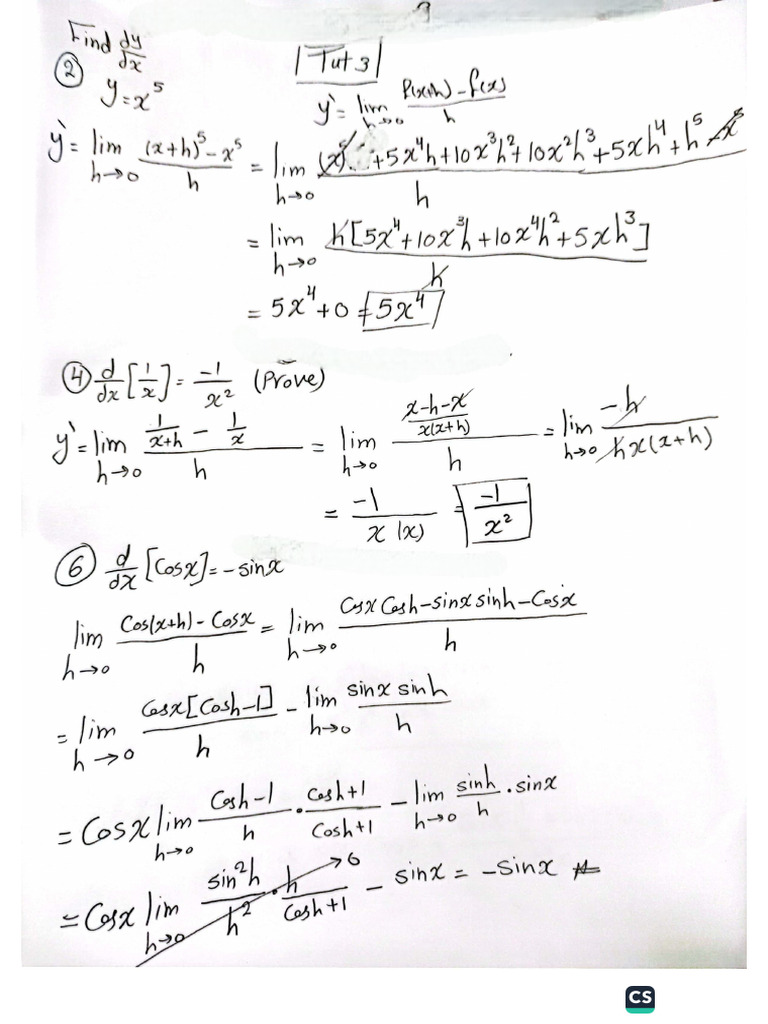 9
Find dy/dx
|Tut 3|
② y=x⁵
y` = lim h→0 f(x+h) - f(x) / h
y` = lim h→0 (x+h)⁵ - x⁵ / h = lim h→0 (x)⁵ + 5x⁴h + 10x³h² + 10x²h³ + 5xh⁴ + h⁵ - x⁵ / h
= lim h→0 h[5x⁴ + 10x³h + 10x⁴h² + 5xh³] / h
= 5x⁴ + 0 = 5x⁴
④ d/dx [1/x] = -1/x² (Prove)
y` = lim h→0 (1/(x+h) - 1/x) / h = lim h→0 ((x-h-x)/(x(x+h))) / h = lim h→0 -h / hx(x+h)
= -1 / x(x) = -1/x²
⑥ d/dx [Cosx] = -sinx
lim h→0 Cos(x+h) - Cosx / h = lim h→0 Cosx Cosh - sinx sinh - Cosx / h
= lim h→0 Cosx[Cosh-1] / h - lim h→0 sinx sinh / h
= Cosx lim h→0 Cosh-1 / h . Cosh+1 / Cosh+1 - lim h→0 sinh / h . sinx
= Cosx lim h→0 sin²h / h² . h / Cosh+1 →0 - sinx = -sinx
CS